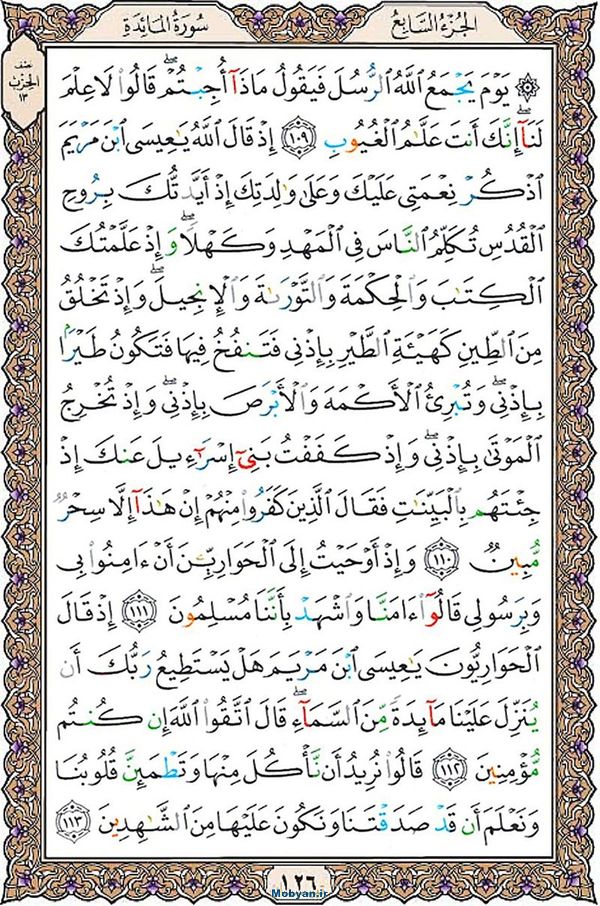 الجزء السابع
سورة المائدة
نصف
الحزب
١٣
يَوْمَ يَجْمَعُ ٱللَّهُ ٱلرُّسُلَ فَيَقُولُ مَاذَآ أُجِبْتُمْ ۖ قَالُوا۟ لَا عِلْمَ
لَنَآ ۖ إِنَّكَ أَنتَ عَلَّـٰمُ ٱلْغُيُوبِ ١٠٩ إِذْ قَالَ ٱللَّهُ يَـٰعِيسَى ٱبْنَ مَرْيَمَ
ٱذْكُرْ نِعْمَتِى عَلَيْكَ وَعَلَىٰ وَٰلِدَتِكَ إِذْ أَيَّدتُّكَ بِرُوحِ
ٱلْقُدُسِ تُكَلِّمُ ٱلنَّاسَ فِى ٱلْمَهْدِ وَكَهْلًا ۖ وَإِذْ عَلَّمْتُكَ
ٱلْكِتَـٰبَ وَٱلْحِكْمَةَ وَٱلتَّوْرَىٰةَ وَٱلْإِنجِيلَ ۖ وَإِذْ تَخْلُقُ
مِنَ ٱلطِّينِ كَهَيْـَٔةِ ٱلطَّيْرِ بِإِذْنِى فَتَنفُخُ فِيهَا فَتَكُونُ طَيْرًۢا
بِإِذْنِى ۖ وَتُبْرِئُ ٱلْأَكْمَهَ وَٱلْأَبْرَصَ بِإِذْنِى ۖ وَإِذْ تُخْرِجُ
ٱلْمَوْتَىٰ بِإِذْنِى ۖ وَإِذْ كَفَفْتُ بَنِىٓ إِسْرَٰٓءِيلَ عَنكَ إِذْ
جِئْتَهُم بِٱلْبَيِّنَـٰتِ فَقَالَ ٱلَّذِينَ كَفَرُوا۟ مِنْهُمْ إِنْ هَـٰذَآ إِلَّا سِحْرٌ
مُّبِينٌ ١١٠ وَإِذْ أَوْحَيْتُ إِلَى ٱلْحَوَارِيِّـۧنَ أَنْ ءَامِنُوا۟ بِى
وَبِرَسُولِى قَالُوٓا۟ ءَامَنَّا وَٱشْهَدْ بِأَنَّنَا مُسْلِمُونَ ١١١ إِذْ قَالَ
ٱلْحَوَارِيُّونَ يَـٰعِيسَى ٱبْنَ مَرْيَمَ هَلْ يَسْتَطِيعُ رَبُّكَ أَن
يُنَزِّلَ عَلَيْنَا مَآئِدَةً مِّنَ ٱلسَّمَآءِ ۖ قَالَ ٱتَّقُوا۟ ٱللَّهَ إِن كُنتُم
مُّؤْمِنِينَ ١١٢ قَالُوا۟ نُرِيدُ أَن نَّأْكُلَ مِنْهَا وَتَطْمَئِنَّ قُلُوبُنَا
وَنَعْلَمَ أَن قَدْ صَدَقْتَنَا وَنَكُونَ عَلَيْهَا مِنَ ٱلشَّـٰهِدِينَ ١١٣
١٢٦
Mobyan.ir